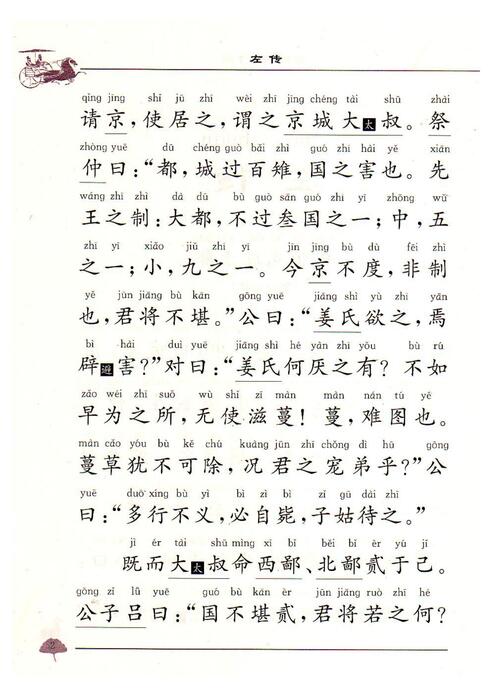 左传
qǐng jīng shǐ jū zhī wèi zhī jīng chéng tài shū zhài
请京，使居之，谓之京城大太叔。祭
zhòng yuē dū chéng guò bǎi zhì guó zhī hài yě xiān
仲曰：“都，城过百雉，国之害也。先
wáng zhī zhì dà dū bù guò sān guó zhī yī zhōng wǔ
王之制：大都，不过叁国之一；中，五
zhī yī xiǎo jiǔ zhī yī jīn jīng bù dù fēi zhì
之一；小，九之一。今京不度，非制
yě jūn jiāng bù kān gōng yuē jiāng shì yù zhī yān
也，君将不堪。”公曰：“姜氏欲之，焉
bì hài duì yuē jiāng shì hé yàn zhī yǒu bù rú
辟避害？”对曰：“姜氏何厌之有？不如
zǎo wéi zhī suǒ wú shǐ zī màn màn nán tú yě
早为之所，无使滋蔓！蔓，难图也。
màn cǎo yóu bù kě chú kuàng jūn zhī chǒng dì hū gōng
蔓草犹不可除，况君之宠弟乎？”公
yuē duō xíng bù yì bì zì bì zǐ gū dài zhī
曰：“多行不义，必自毙，子姑待之。”
jì ér tài shū mìng xī bǐ běi bǐ èr yú jǐ
既而大太叔命西鄙、北鄙贰于己。
gōng zǐ lǚ yuē guó bù kān èr jūn jiāng ruò zhī hé
公子吕曰：“国不堪贰，君将若之何？
2